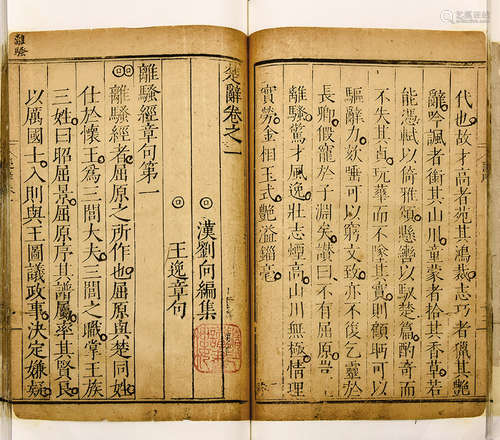 代也故才高者菀其鴻裁志巧者獵其艷
辭吟諷者銜其山川童蒙者拾其香草若
能憑軾以倚雅頌懸轡以馭楚篇酌奇而
不失其貞玩華而不墜其實則顧盻可以
驅辭力欬唾可以窮文致亦不復乞靈於
長卿假寵於子淵矣讚曰不有屈原豈
離騷驚才風逸壯志煙高山川無極情理
實勞金相玉式艷溢錙毫
楚辭卷之一
漢劉向編集
王逸章句
離騷經章句第一
離騷經者屈原之所作也屈原與楚同姓
仕於懷王爲三閭大夫三閭之職掌王族
三姓曰昭屈景屈原序其譜屬率其賢良
以厲國士入則與王圖議政事決定嫌疑
離騷